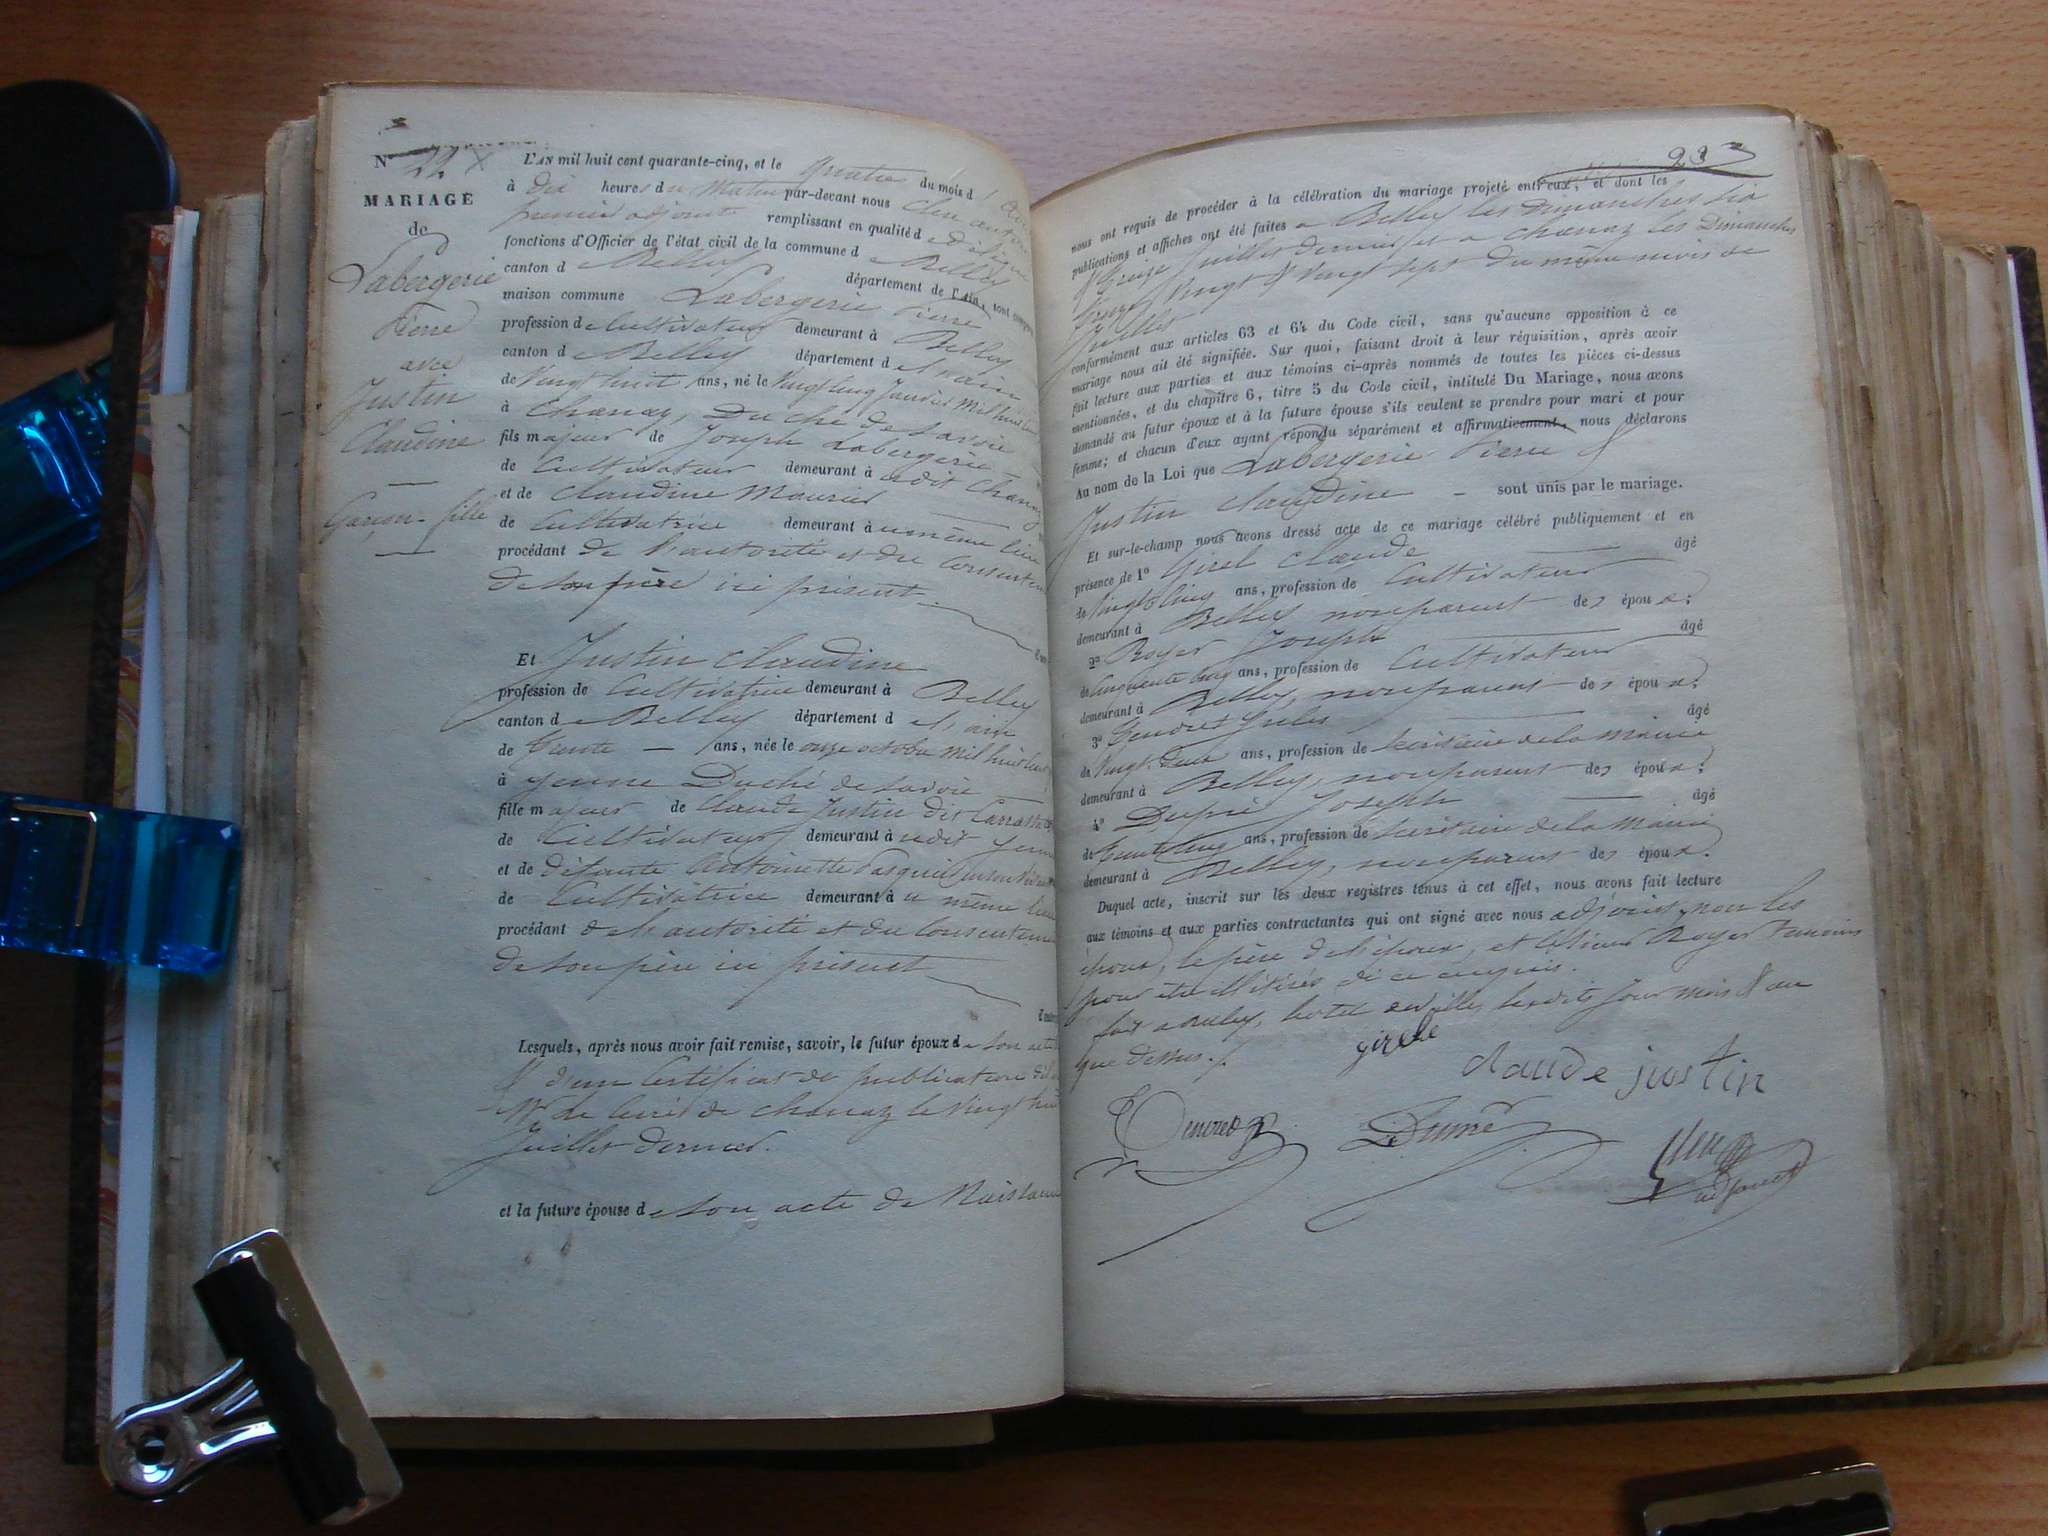 N° 22
MARIAGE
de
Labergerie
Pierre
avec
Justin
Claudine
Garçon - fille
L'AN mil huit cent quarante-cinq, et le quatre du mois d'
à dix heures du matin par-devant nous
premier adjoint remplissant en qualité de
fonctions d'Officier de l'état civil de la commune de Belley
canton de Belley département de l'Ain, sont
maison commune Labergerie Pierre
profession de Cultivateur demeurant à Belley
canton de Belley département de l'ain
de Vingt huit ans, né le Vingt cinq Janvier mil huit cent
à Chanaz, Duché de Savoie
fils majeur de Joseph Labergerie
de Cultivateur demeurant à udit Chanaz
et de Claudine Maurier
de Cultivatrice demeurant à u même lieu
procédant de l'autorité et du Consentem
de son père ici présent
Et Justin Claudine
profession de Cultivatrice demeurant à Belley
canton de Belley département de l'ain
de Trente ans, née le onze octobre mil huit cent
à Yenne Duché de Savoie
fille majeur de Claude Justin dit
de Cultivateur demeurant à udit Yenne
et de défunte Antoinette Pasquier
de Cultivatrice demeurant à u même lieu
procédant de l'autorité et du Consentem
de son père ici présent
Lesquels, après nous avoir fait remise, savoir, le futur époux de son acte
& d'un Certificat de publication
Mr le Curé de Chanaz le Vingt huit
Juillet dernier.
et la future épouse de son acte de Naissance
23
nous ont requis de procéder à la célébration du mariage projeté entr'eux, et dont les
publications et affiches ont été faites a Belley les dimanches six
& treize Juillet dernier et a Chanaz les Dimanches
Vingt & Vingt sept du même mois de
Juillet
conformément aux articles 63 et 64 du Code civil, sans qu'aucune opposition à ce
mariage nous ait été signifiée. Sur quoi, faisant droit à leur réquisition, après avoir
fait lecture aux parties et aux témoins ci-après nommés de toutes les pièces ci-dessus
mentionnées, et du chapitre 6, titre 5 du Code civil, intitulé Du Mariage, nous avons
demandé au futur époux et à la future épouse s'ils veulent se prendre pour mari et pour
femme; et chacun d'eux ayant répondu séparément et affirmativement, nous déclarons
Au nom de la Loi que Labergerie Pierre &
Justin Claudine - sont unis par le mariage.
Et sur-le-champ nous avons dressé acte de ce mariage célébré publiquement et en
présence de 1° Girel Claude âgé
de Vingt cinq ans, profession de Cultivateur
demeurant à Belley non parent des époux;
2° Roger Joseph âgé
de Cinquante cinq ans, profession de Cultivateur
demeurant à Belley, non parent des époux;
3° Jules âgé
de Vingt deux ans, profession de Secrétaire de la Mairie
demeurant à Belley, non parent des époux;
4° Dupré Joseph âgé
de trente cinq ans, profession de Secrétaire de la Mairie
demeurant à Belley, non parent des époux.
Duquel acte, inscrit sur les deux registres tenus à cet effet, nous avons fait lecture
aux témoins et aux parties contractantes qui ont signé avec nous adjoint, non les
époux, le père de l'époux, et le sieur Roger témoins
pour être illitérés de ce enquis.
fait a Belley, hotel de ville, lesdits jour mois & an
que dessus.
claude justin
adjoint